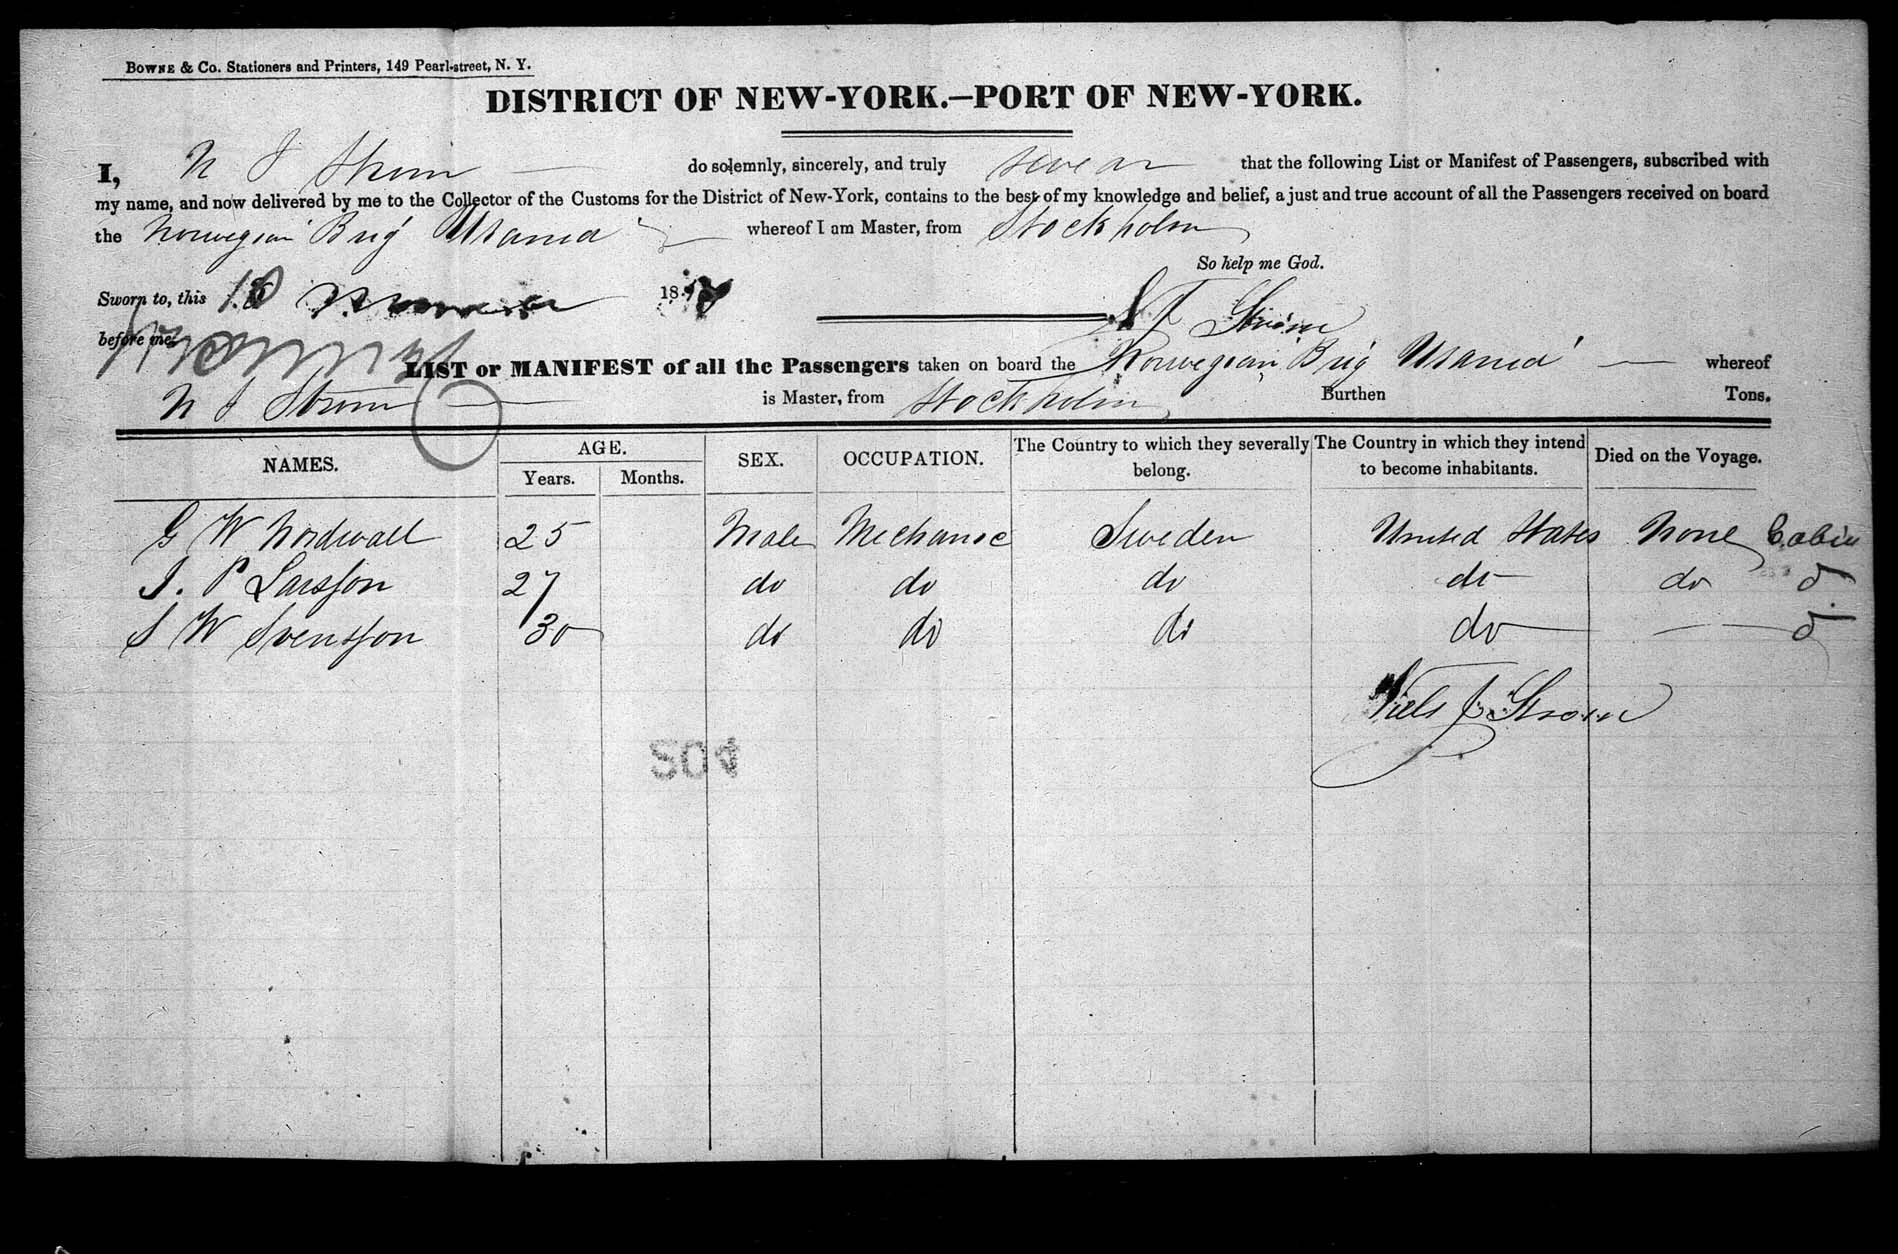 BOWNE & CO. Stationers and Printers, 149 Pearl-street, N. Y.
DISTRICT OF NEW-YORK.—PORT OF NEW-YORK.
I, N J Strom do solemnly, sincerely, and truly swear that the following List or Manifest of Passengers, subscribed with
my name, and now delivered by me to the Collector of the Customs for the District of New-York, contains to the best of my knowledge and belief, a just and true account of all the Passengers received on board
the Norwegian Brig whereof I am Master, from Stockholm
So help me God.
Sworn to, this 18
before me.
LIST or MANIFEST of all the Passengers taken on board the Norwegian Brig whereof
N J Strom is Master, from Stockholm Burthen Tons.
NAMES. AGE. SEX. OCCUPATION. The Country to which they severally belong. The Country in which they intend to become inhabitants. Died on the Voyage.
Years. Months.
G W Nordwall 25 Male Mechanic Sweden United States None Cabin
J. P Larsson 27 do do do do do
S W Svensson 30 do do do do
Niels J Strom
204